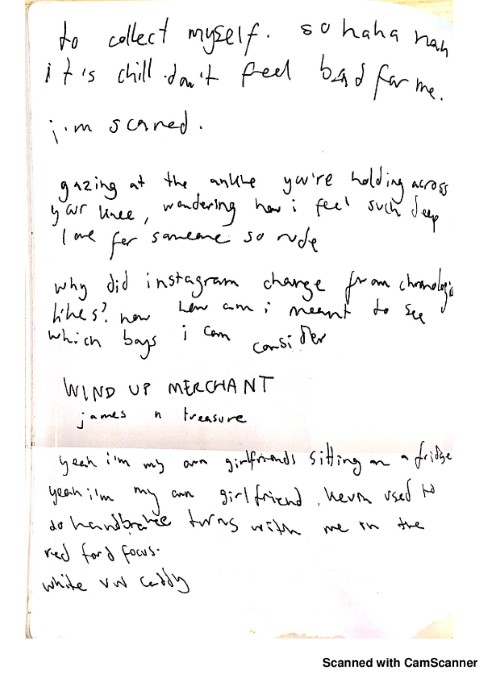 to collect myself. so haha nah
it's chill don't feel bad for me.
i'm scared.
gazing at the ankle you're holding across
your knee, wondering how i feel such deep
love for someone so rude
why did instagram change from chronologic
likes? now how am i meant to see
which boys i can consider
WIND UP MERCHANT
james n treasure
yeah i'm my own girlfriends sitting on a fridge
yeah i'm my own girlfriend. kevin used to
do handbrake turns with me in the
red ford focus.
white vw caddy
Scanned with CamScanner